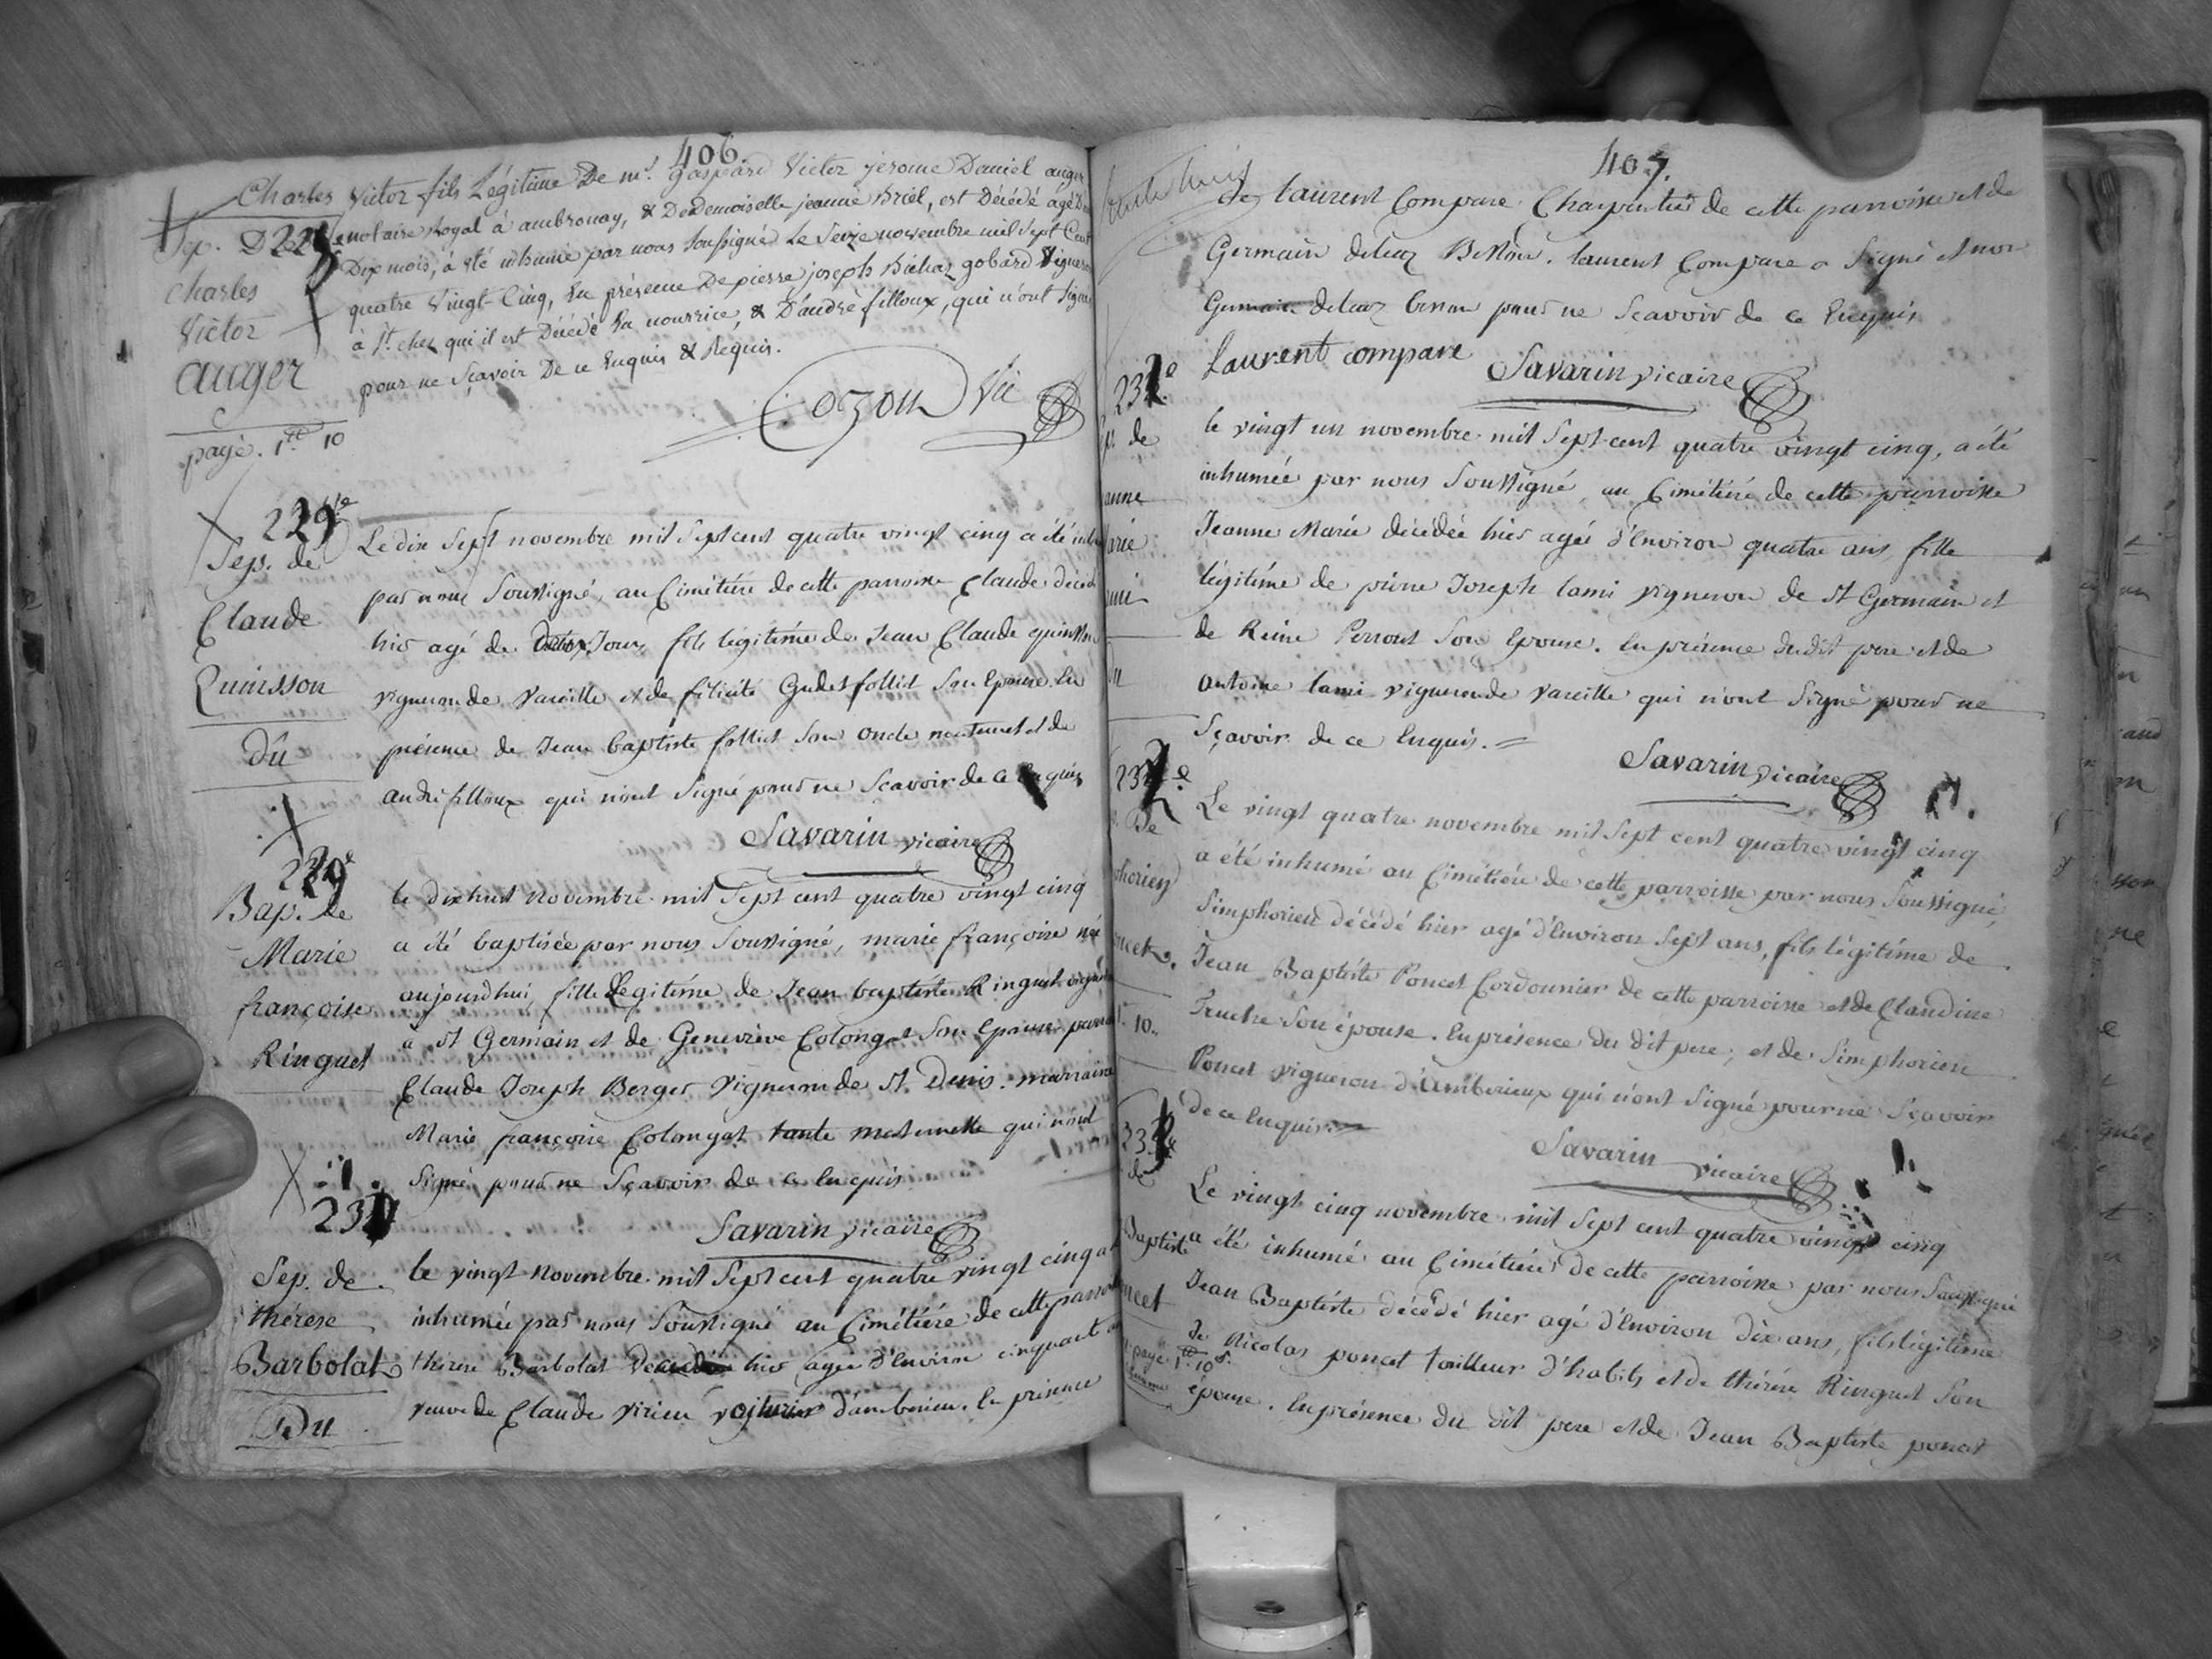 406.
Charles Victor fils Légitime De mr. gaspard Victor jerome Daniel auger
notaire Royal à ambronay, & De demoiselle jeanne Briel, est Décédé agé De
Dix mois, à été inhumé par nous soussigné Le Seize novembre mil Sept Cent
quatre Vingt Cinq, En présence De pierre joseph gobard Vigneron
à St. chez qui il est Décédé Sa nourrice, & D'andré filloux, qui n'ont Signé
pour ne Sçavoir De ce Enquis & Requis.
Cozon Vic
Sep. De
Charles
Victor
auger
payé. 1tt 10
229e
Sep. de
Claude
Quinsson
dû
Le dix Sept novembre mil Sept cent quatre vingt cinq a été
par nous Soussigné, au Cimétiére de cette parroisse Claude décédé
hier agé de deux Jours fils légitime de Jean Claude quinsson
vigneron de Vareille et de félicité Gudet follict Son Epouse. En
présence de Jean baptiste follict Son oncle maternel et de
andré filloux qui n'ont Signé pour ne Scavoir de ce Enquis
Savarin vicaire
229e
Bap. de
Marie
françoise
Ringuet
le dix huit Novembre mil Sept cent quatre vingt cinq
a été baptisée par nous Soussigné, marie françoise née
aujourdhui, fille Legitime de Jean baptiste Ringuet
à St Germain et de Geneviève Colongat Son Epouse
Claude Joseph Berger Vigneron de St. Denis. marraine
Marie françoise Colongat tante maternelle qui n'ont
Signé pour ne Sçavoir de ce Enquis
Savarin vicaire
Sep. de
thérese
Barbolat
Du
le vingt Novembre mil Sept cent quatre vingt cinq a
inhumée par nous Soussigné au Cimétiére de cette
thérese Barbolat Décédée hier agée d'Environ cinquante
veuve de Claude Virieu voiturier d'amberieu. En présence
407.
de laurent Compare Charpentier de cette parroisse et de
Germain deluaz Besson. laurent Compare a Signé et non
Germain deluaz besson pour ne Scavoir de ce Enquis
Laurent compare
Savarin vicaire
le vingt un novembre mil Sept cent quatre vingt cinq, a été
inhumée par nous Soussigné, au Cimétiére de cette parroisse
Jeanne Marie décédée hier agée d'Environ quatre ans, fille
légitime de pierre Joseph lami vigneron de St Germain et
de Reine Perrout Son Epouse. En présence dudit pere et de
Antoine lami vigneron de Vareille qui n'ont Signé pour ne
Sçavoir de ce Enquis.
Savarin vicaire
Le vingt quatre novembre mil Sept cent quatre vingt cinq
a été inhumé au Cimétiére de cette parroisse par nous Soussigné,
Simphorien décédé hier agé d'Environ Sept ans, fils légitime de
Jean Baptiste Poncet Cordonnier de cette parroisse et de Claudine
Truche Son épouse. En présence du dit pere, et de Simphorien
Poncet vigneron d'Amberieux qui n'ont Signé pour ne Sçavoir
de ce Enquis.
Savarin vicaire
Le vingt cinq novembre mil Sept cent quatre vingt cinq
a été inhumé au Cimétiére de cette parroisse par nous Soussigné
Jean Baptiste décédé hier agé d'Environ Dix ans, fils légitime
de Nicolas poncet tailleur d'habits et de thérése Ringuet Son
épouse. En présence du dit pere et de Jean Baptiste poncet